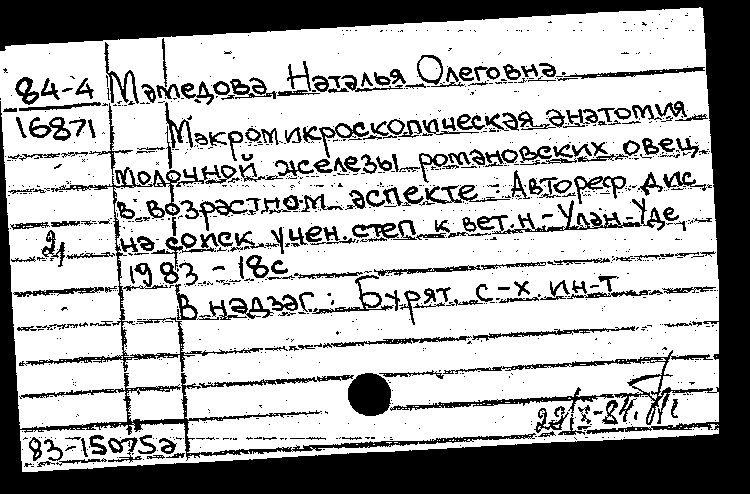 84-4 Мамедова, Наталья Олеговна.
16871 Макромикроскопическая анатомия
молочной железы романовских овец
в возрастном аспекте: Автореф дис
21 на соиск учен. степ к вет. н - Улан-Уде,
1983 - 18с
В надзаг: Бурят. с-х ин-т
22/X-84.
83-15075а